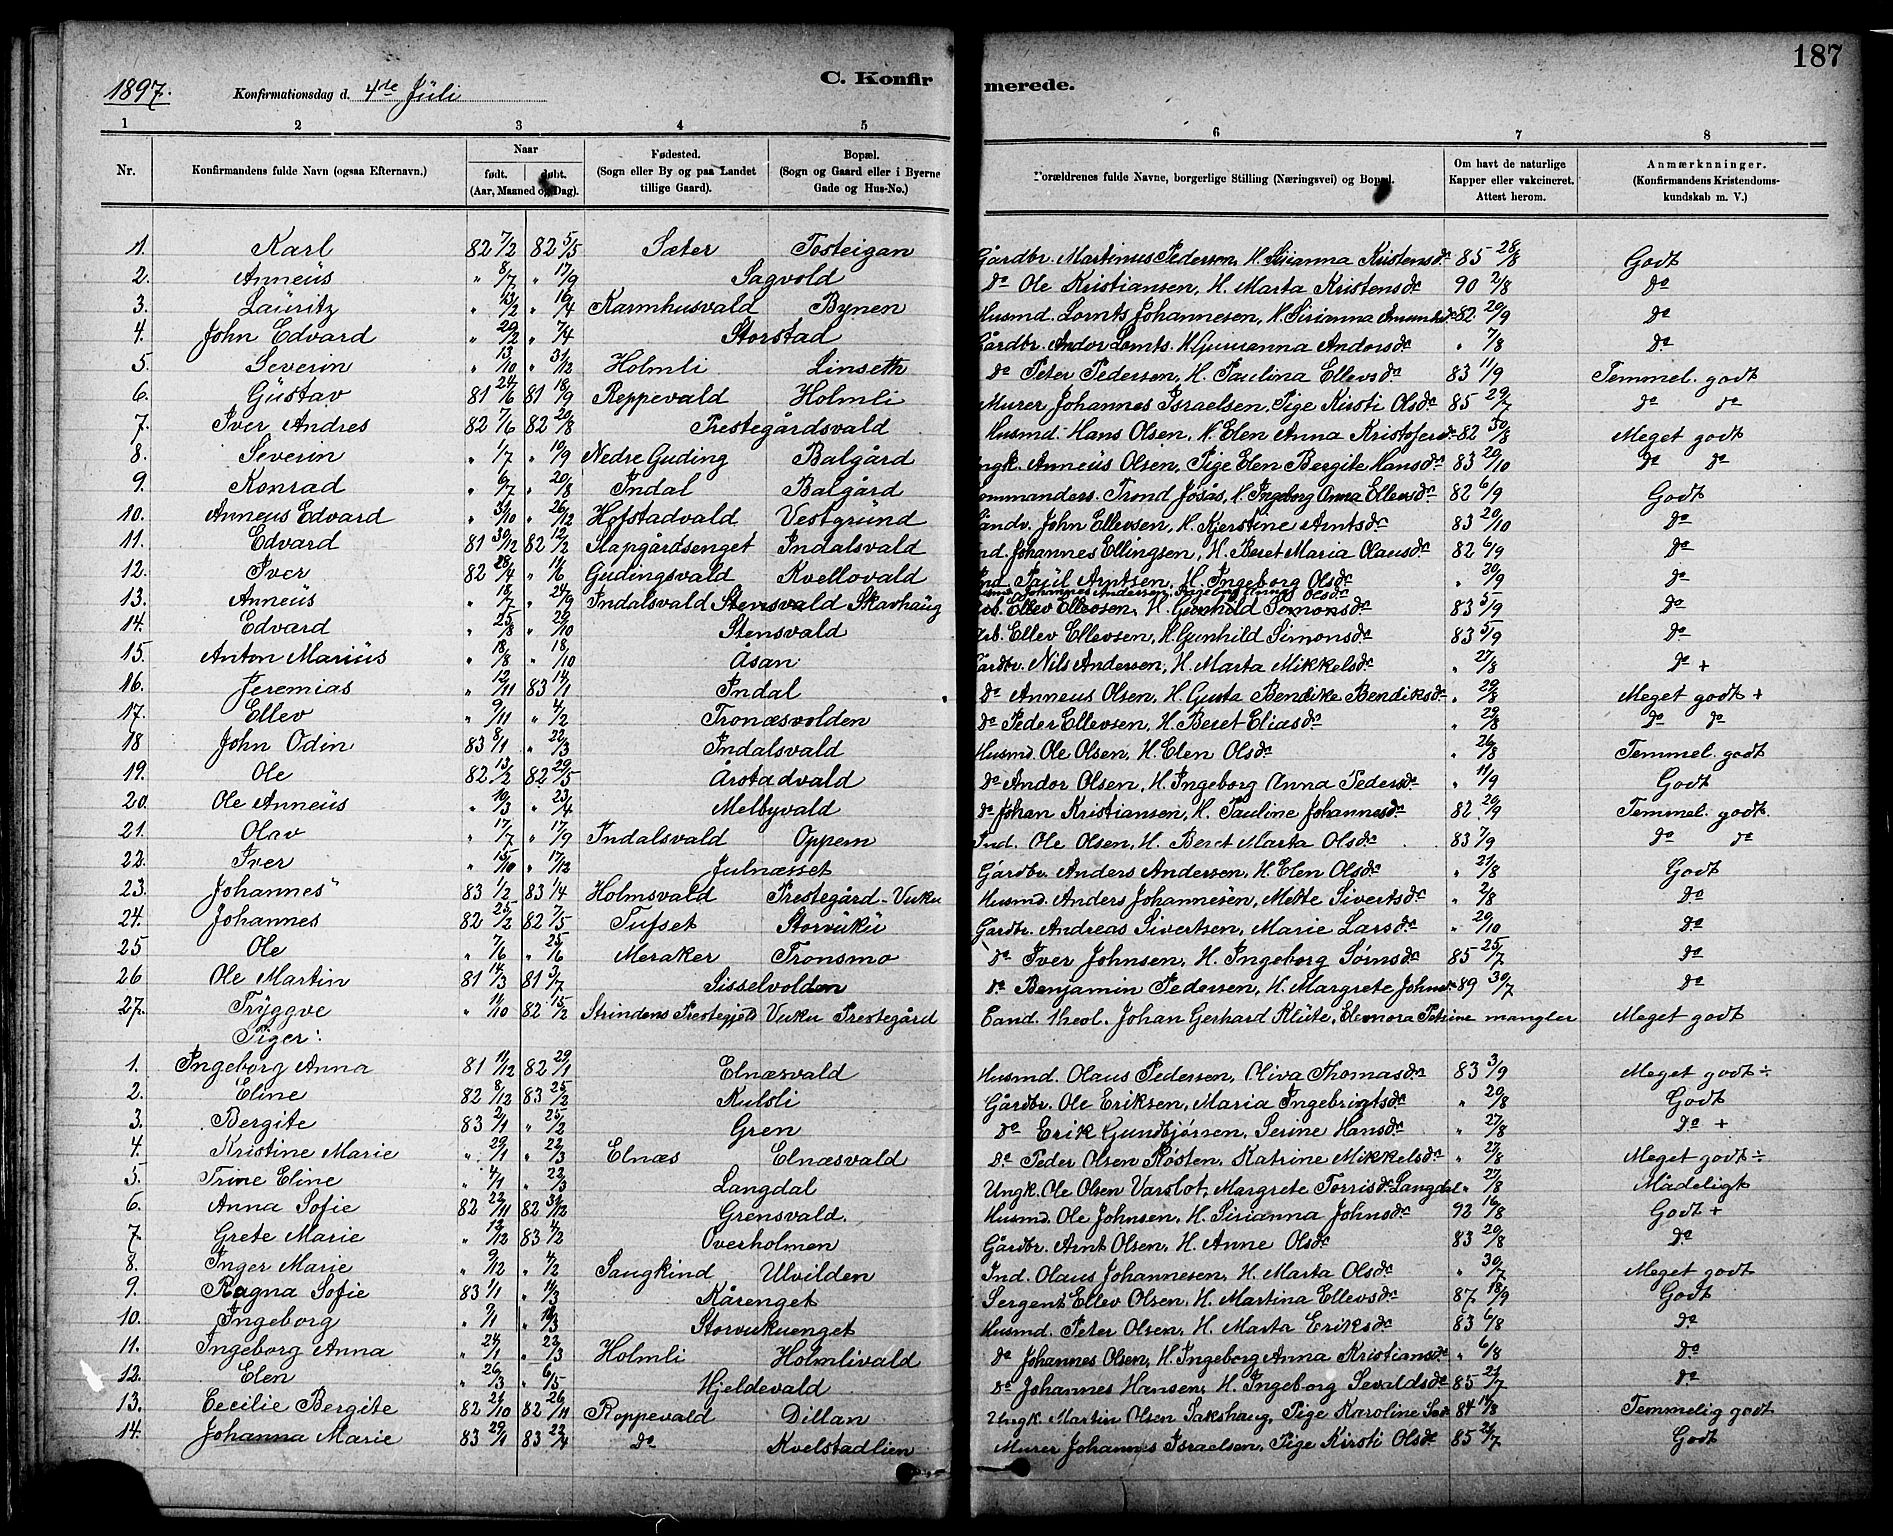 187
1897. Konfirmationsdag d. 4de Juli C. Konfirmerede.
1 2 3 4 5 6 7 8
Nr. Konfirmandens fulde Navn (ogsaa Efternavn). Naar født. døbt. (Aar, Maaned og Dag). Fødested. (Sogn eller By og paa Landet tillige Gaard). Bopæl. (Sogn og Gaard eller i Byerne Gade og Hus-No.) Forældrenes fulde Navne, borgerlige Stilling (Næringsvei) og Bopæl. Om havt de naturlige Kapper eller vakcineret. Attest herom. Anmærkninger. (Konfirmandens Kristendomskundskab m. V.)
1. Karl 82 7/2 82 5/5 Sæter Tosteigan Gårdbr. Martinus Pedersen, H. Sirianna Kristensdr 85 28/8 Godt
2. Anneus " 8/7 " 17/9 Sagvold do Ole Kristiansen, H. Marta Kristensdr 90 2/8 do
3. Lauritz " 13/2 " 16/4 Karmhusvald Bynen Husmd. Lornts Johannesen, H. Sirianna 82 20/9 do
4. John Edvard " 20/2 " 7/4 Storstad Gårdbr. Andor Lornts. H. Gunanna Andorsdr " 7/8 do
5. Severin " 13/10 " 31/12 Holmli Linseth do Peter Pedersen, H. Paulina Ellevsdr 83 11/9 Temmel. godt
6. Gustav 81 24/6 81 18/9 Reppevald Holmli Murer Johannes Israelsen, Pige Kirsti Olsdr 85 29/7 do do
7. Iver Andres 82 7/6 82 20/8 Prestegårdsvald Husmd. Hans Olsen, H. Elen Anna Kristofersdr 82 30/8 Meget godt
8. Severin " 1/7 " 10/9 Nedre Guding Balgård Ungk. Anneus Olsen, Pige Elen Bergite Hansdr 83 20/10 do do
9. Konrad " 6/7 " 20/8 Indal Balgård Kommanders. Trond Josås, H. Ingeborg Anna Ellevsdr 82 6/9 Godt
10. Anneus Edvard " 31/10 " 26/12 Hofstadvald Vestgrund Gårdv. John Ellevsen, H. Kjerstine Arntsdr 83 20/10 do
11. Edvard 81 30/12 82 12/2 Slapgårdsenget Indalsvald Ind. Johannes Ellingsen, H. Beret Maria Olausdr 82 6/9 do
12. Iver 82 28/4 " 11/6 Gudingsvald Kvellovald Ind. Paul Arntsen, H. Ingeborg Olsdr " 20/9 do
13. Anneus " 13/7 " 24/9 Indalsvald Stensvald Skavhaug Johannes Andersen, Pige Olsdr Arb. Ellev Ellevsen, H. Gunhild Simonsdr 83 5/9 do
14. Edvard " 25/8 " 29/10 Stensvald Arb. Ellev Ellevsen, H. Gunhild Simonsdr 83 5/9 do
15. Anton Marius " 18/8 " 18/10 Åsan Gårdbr. Nils Andersen, H. Marta Mikkelsdr " 27/8 do +
16. Jeremias " 12/11 83 14/1 Indal do Anneus Olsen, H. Gusta Bendike Bendiksdr " 29/8 Meget godt +
17. Ellev " 9/11 " 4/2 Tronæsvolden do Peder Ellevsen, H. Beret Eliasdr " 29/8 do do
18 John Odin 83 8/1 " 22/3 Indalsvald Husmd. Ole Olsen, H. Elen Olsdr " 26/8 Temmel. godt
19. Ole 82 13/2 82 29/5 Årstadvald do Andor Olsen, H. Ingeborg Anna Pedersdr " 11/9 Godt
20. Ole Anneus " 10/3 " 23/4 Melbyvald do Johan Kristiansen, H. Pauline Johannesdr 82 20/9 Temmel. godt.
21. Olav " 17/7 " 17/9 Indalsvald Oppem Ind. Ole Olsen, H. Beret Marta Olsdr 83 7/9 do do
22. Iver " 15/10 " 17/12 Julnæsset Gårdbr. Anders Andersen, H. Elen Olsdr " 21/8 Godt
23. Johannes 83 1/2 83 1/4 Holmsvald Prestegård-Vuku Husmd. Anders Johannesen, Mette Sivertsdr " 2/8 do
24. Johannes 82 25/2 82 7/5 Tufset Storvuku Gårdbr. Andreas Sivertsen, Marie Larsdr " 20/10 do
25 Ole " 7/6 " 25/6 Meraker Tronsmo do Iver Johnsen, H. Ingeborg Sørnsdr 85 25/7 do
26 Ole Martin 81 14/3 81 3/7 Sisselvolden do Benjamin Pedersen, H. Margrete Johnsdr 89 30/7 do
27. Tryggve " 11/10 82 15/2 Strindens Prestegjeld Vuku Prestegård Cand. theol. Johan Gerhard Klüte, Eleonora Petrine mangler Meget godt
Piger:
1. Ingeborg Anna 81 11/12 82 29/1 Elnæsvald Husmd. Olaus Pedersen, Oliva Thomasdr 83 3/9 Meget godt ÷
2. Eline 82 8/12 83 25/2 Kulsli Gårdbr. Ole Eriksen, Maria Ingebrigtsdr " 20/8 Godt
3. Bergite 83 2/1 " 25/2 Gren do Erik Gundbjørnsen, Serine Hansdr " 27/8 do +
4. Kristine Marie " 29/1 " 22/3 Elnæs Elnæsvald do Peder Olsen Røsten, Katrine Mikkelsdr " 27/8 Meget godt ÷
5. Trine Eline " 4/1 " 22/3 Langdal Ungk. Ole Olsen Varslot, Margrete Torrisdr Langdal " 27/8 Mådeligt
6. Anna Sofie 82 22/11 82 31/12 Grensvald. Husmd. Ole Johnsen, H. Sirianna Johnsdr 92 16/8 Godt +
7. Grete Marie " 13/12 83 4/2 Overholmen Gårdbr. Arnt Olsen, H. Anne Olsdr 83 20/8 do
8. Inger Marie " 9/12 " 4/2 Saugkind Ulvilden Ind. Olaus Johannesen, H. Marta Olsdr " 30/7 Meget godt
9. Ragna Sofie 83 1/1 " 4/3 Kårenget Sergent Ellev Olsen, H. Martina Ellevsdr 87 18/9 Godt
10. Ingeborg " 7/1 " 18/3 Storvukuenget Husmd. Peter Olsen, H. Marta Eriksdr 83 6/8 do
11. Ingeborg Anna " 24/1 " 23/3 Holmli Holmlivald do Johannes Olsen, H. Ingeborg Anna Kristiansdr " 6/8 do
12. Elen " 26/3 " 6/5 Hjeldevald do Johannes Hansen, H. Ingeborg Sevaldsdr 85 21/7 do
13. Cecilie Bergite 82 21/10 82 26/11 Roppevald Dillan Ungk. Martin Olsen Sakshaug, Pige Karoline 84 14/8 Temmelig godt
14. Johanna Marie 83 29/1 83 22/4 do Kvelstadlien Murer Johannes Israelsen, Pige Kirsti Olsdr 85 24/7 Godt